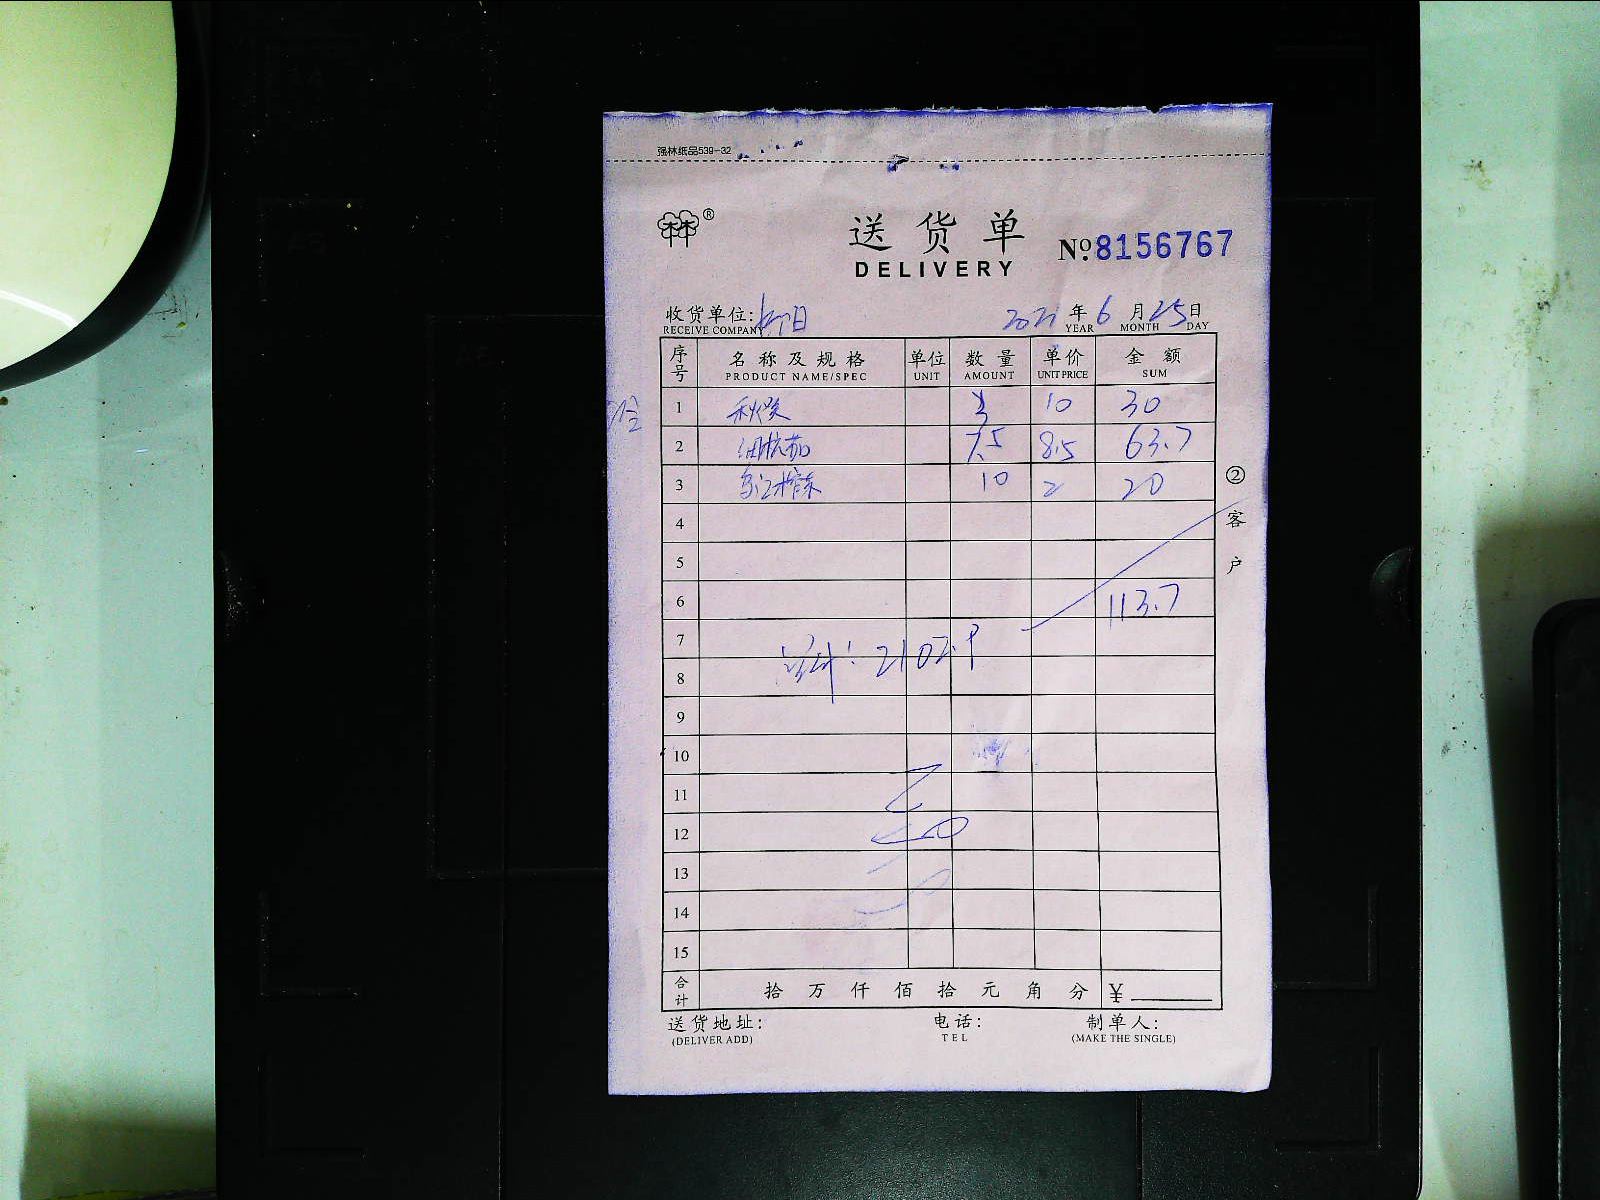 强林纸品539-32
®
送货单
DELIVERY
№:8156767
收货单位: 2021年6月25日
RECEIVE COMPANY YEAR MONTH DAY
序号 名称及规格 单位 数量 单价 金额
PRODUCT NAME/SPEC UNIT AMOUNT UNIT PRICE SUM
1 秋葵 3 10 30
2 7.5 8.5 63.7
3 乌江榨菜 10 2 20
4
5
6 113.7
7
8
9
10
11
12
13
14
15
②客户
合计 拾 万 仟 佰 拾 元 角 分 ¥
送货地址: 电话: 制单人:
(DELIVER ADD) TEL (MAKE THE SINGLE)